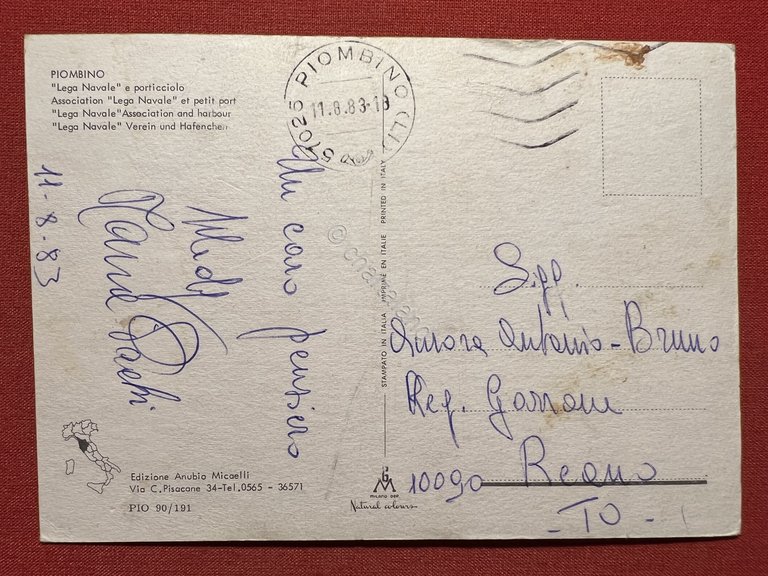 PIOMBINO
"Lega Navale" e porticciolo
Association "Lega Navale" et petit port
"Lega Navale" Association and harbour
"Lega Navale" Verein und Hafenchen
57025 PIOMBINO (LI)
11.8.83-18
11-8-83
Un caro pensiero
STAMPATO IN ITALIA IMPRIMÉ EN ITALIE PRINTED IN ITALY
Sigg.
Aurora Antonio-Bruno
Reg. Garrone
10090 Reano
-TO-
Edizione Anubio Micaelli
Via C. Pisacane 34-Tel. 0565 - 36571
PIO 90/191
MILANO
Natural colours